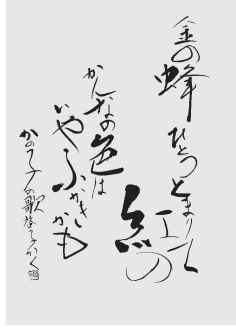 金の蜂
ひとつとまりて
紅の
かんなの色は
いやふかきかも
かの子の歌　なみかく